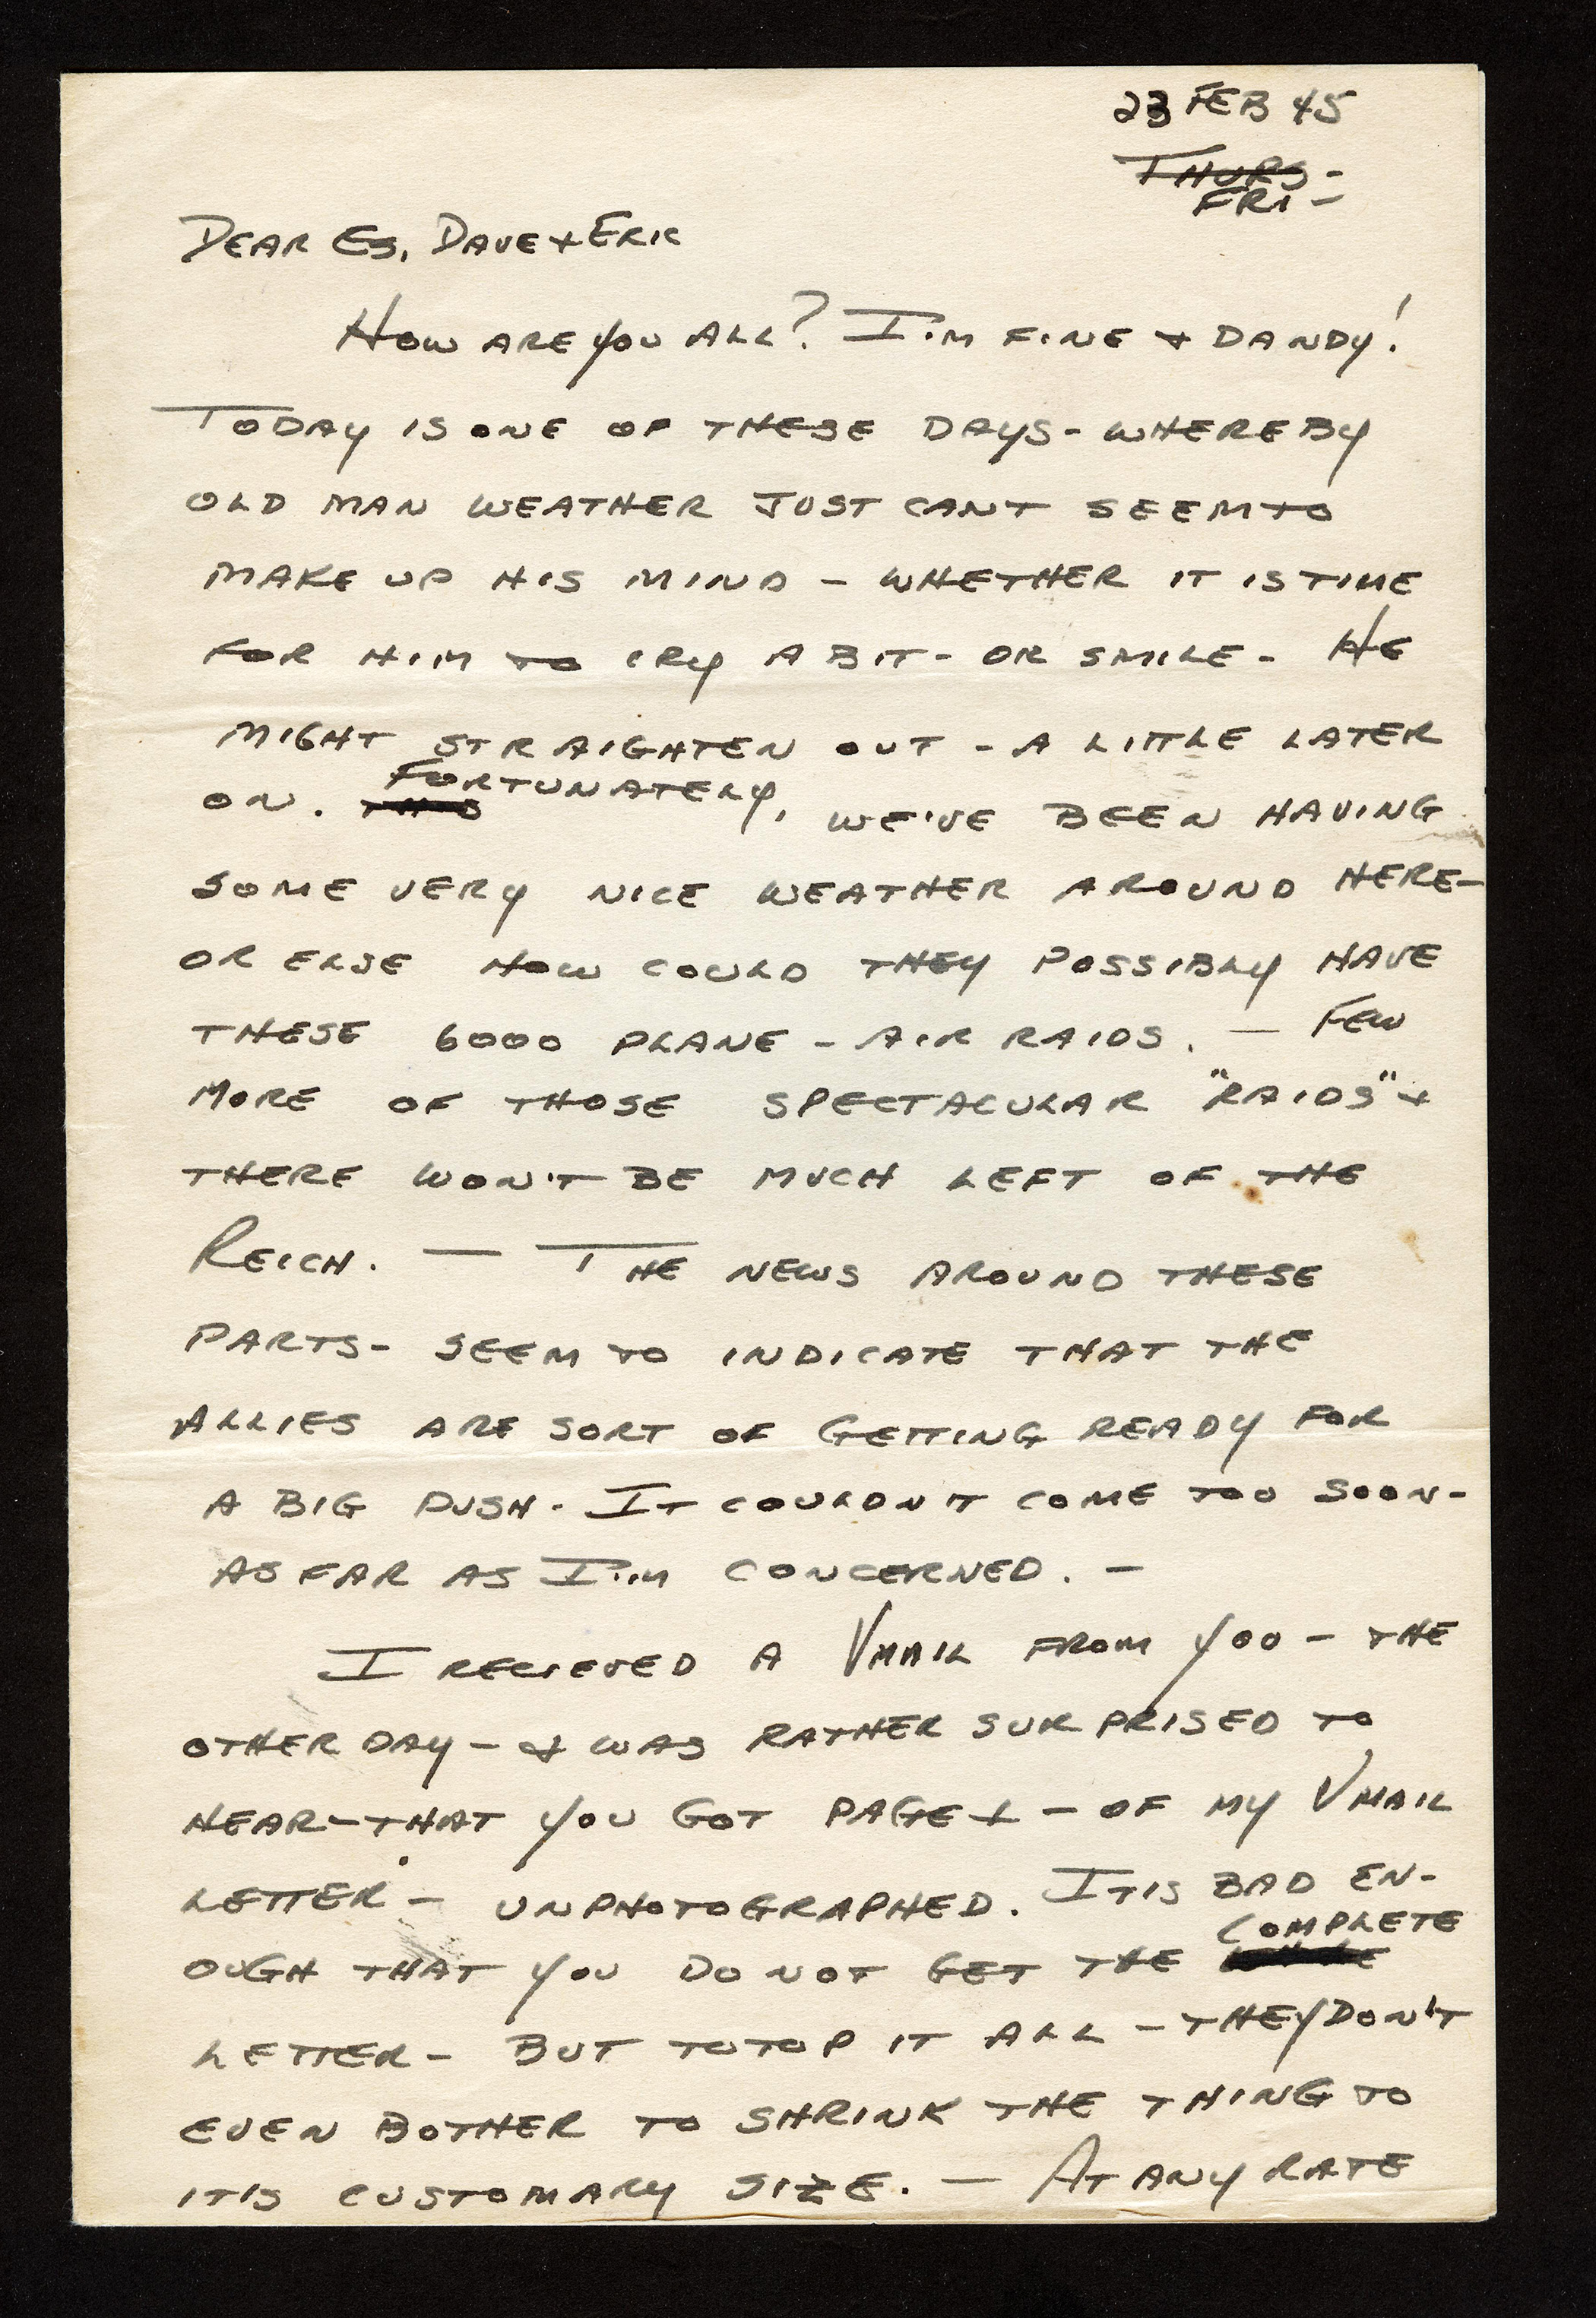 23 FEB 45
THURS-
FRI-
DEAR ES, DAVE & ERIC
HOW ARE YOU ALL? I'M FINE & DANDY!
TODAY IS ONE OF THESE DAYS - WHEREBY
OLD MAN WEATHER JUST CANT SEEM TO
MAKE UP HIS MIND - WHETHER IT IS TIME
FOR HIM TO CRY A BIT - OR SMILE - HE
MIGHT STRAIGHTEN OUT - A LITTLE LATER
FORTUNATELY,
ON. WE'VE BEEN HAVING
SOME VERY NICE WEATHER AROUND HERE-
OR ELSE HOW COULD THEY POSSIBLY HAVE
THESE 6000 PLANE - AIR RAIDS. — FEW
MORE OF THOSE SPECTACULAR "RAIDS" &
THERE WON'T BE MUCH LEFT OF THE
REICH. — THE NEWS AROUND THESE
PARTS - SEEM TO INDICATE THAT THE
ALLIES ARE SORT OF GETTING READY FOR
A BIG PUSH. IT COULDN'T COME TOO SOON-
AS FAR AS I'M CONCERNED. —
I RECIEVED A VMAIL FROM YOU - THE
OTHER DAY - & WAS RATHER SURPRISED TO
HEAR - THAT YOU GOT PAGE 1 - OF MY VMAIL
LETTER - UNPHOTOGRAPHED. IT IS BAD EN-
COMPLETE
OUGH THAT YOU DO NOT GET THE
LETTER - BUT TO TOP IT ALL - THEY DON'T
EVEN BOTHER TO SHRINK THE THING TO
IT'S CUSTOMARY SIZE. — AT ANY RATE